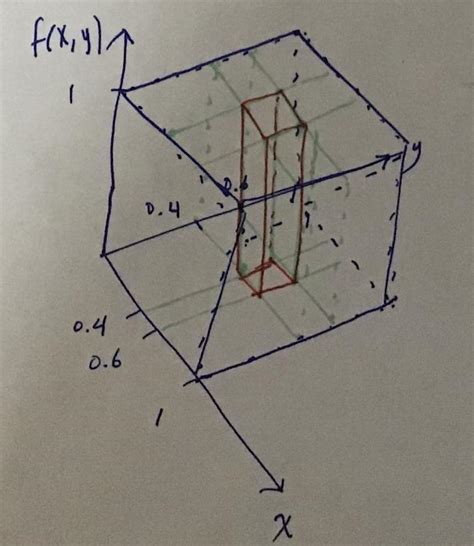 f(x,y)
1
y
0.6
0.4
0.4
0.6
1
x